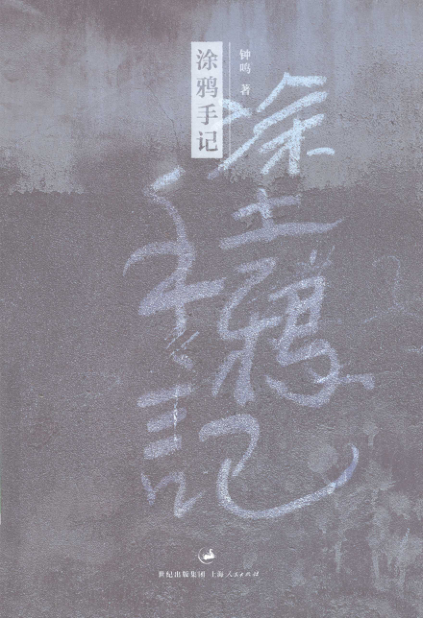 涂鸦手记
钟鸣 著
塗鴉
手記
世纪出版集团 上海人民出版社